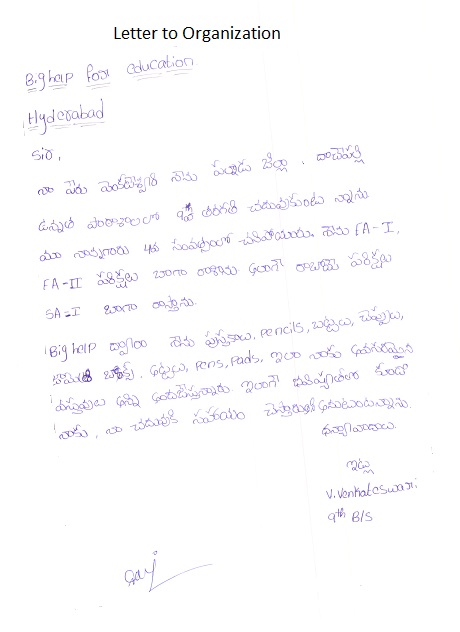 Letter to Organization
Big help for education
Hyderabad
Sir,
నా పేరు వెంకటేశ్వరి నేను పల్నాడు జిల్లా, దాచేపల్లి
ఉన్నత పాఠశాలలో 9వ తరగతి చదువుకుంటున్నాను
మా నాన్నగారు 4వ సంవత్సరంలో చనిపోయారు. నేను FA-I,
FA-II పరీక్షలు బాగా రాశాను అలాగే రాబోయే పరీక్షలు
SA-I బాగా రాస్తాను.
Big help ద్వారా నేను పుస్తకాలు, pencils, బట్టలు, చెప్పులు,
అట్టలు, pens, pads, ఇలా నాకు అవసరమైన
వస్తువులు అన్ని అందజేస్తున్నారు. ఇలాగే భవిష్యత్తులో కూడా
నాకు, నా చదువుకి సహాయం చేస్తారని అనుకుంటున్నాను.
ధన్యవాదాలు.
ఇట్లు
V. Venkateswari
9th B/S